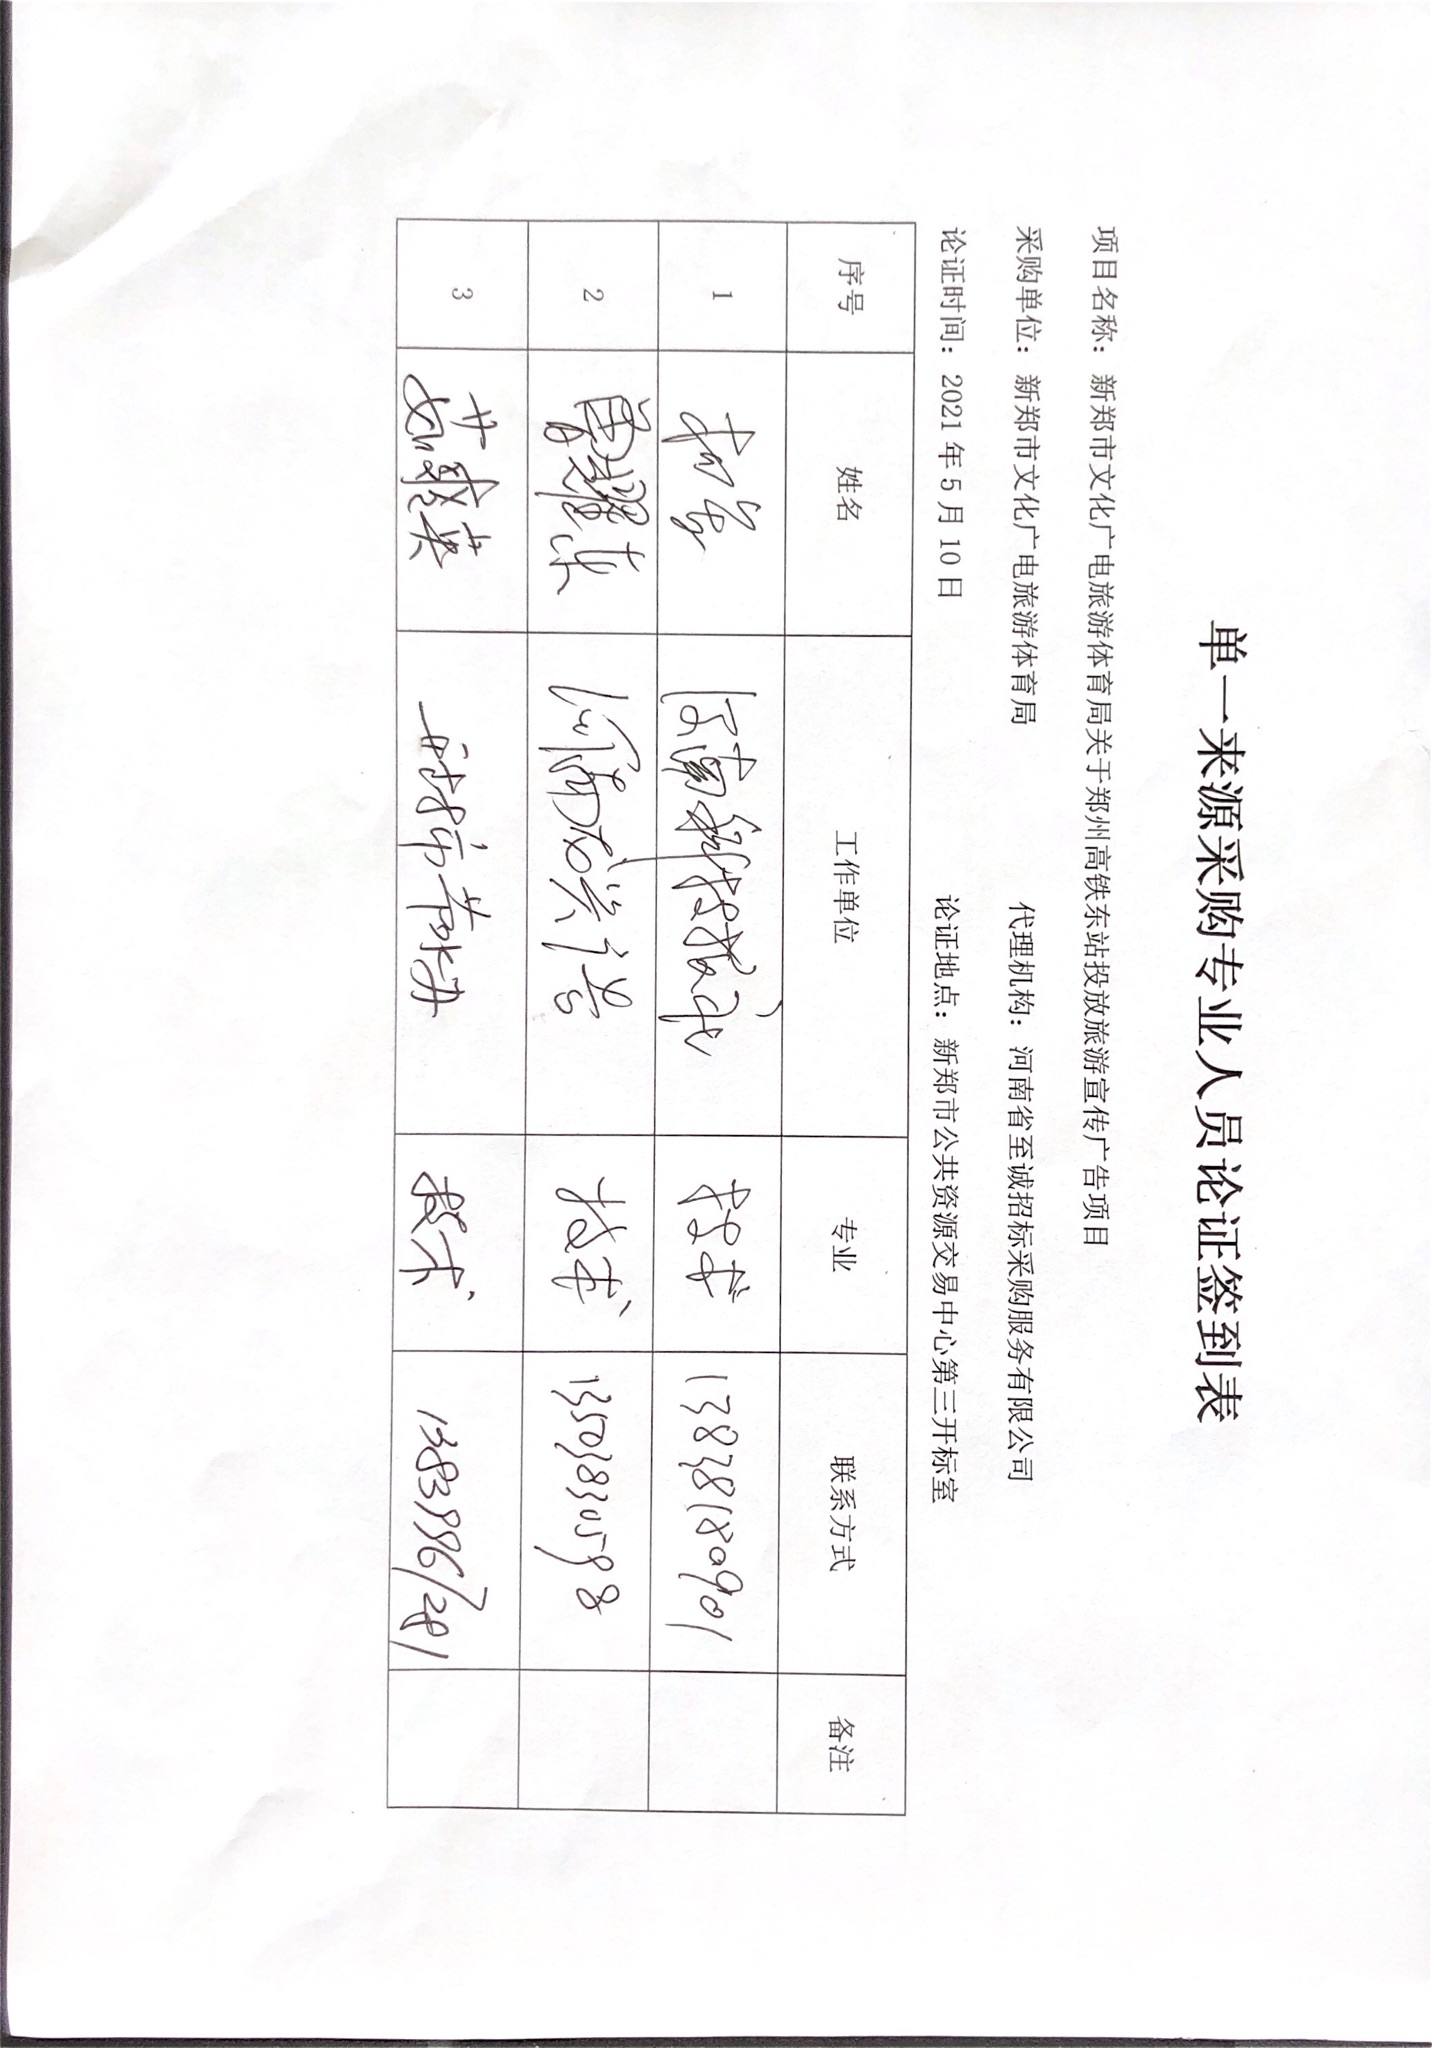 单一来源采购专业人员论证签到表
项目名称：新郑市文化广电旅游体育局关于郑州高铁东站投放旅游宣传广告项目
采购单位：新郑市文化广电旅游体育局 代理机构：河南省至诚招标采购服务有限公司
论证时间：2021年5月10日 论证地点：新郑市公共资源交易中心第三开标室
序号 姓名 工作单位 专业 联系方式 备注
1 技术 13838180901
2 技术 13503830598
3 技术